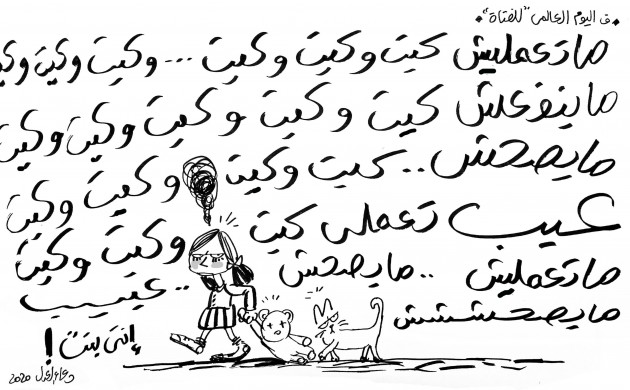 ف اليوم العالمى "للفتاة"
ماتعمليش كيت وكيت وكيت ... وكيت وكيت وكيت
ماينفعش كيت وكيت وكيت وكيت وكيت
مايصحش .. كيت وكيت وكيت وكيت
عيب تعملى كيت وكيت وكيت
ماتعمليش .. مايصحش .. عييييب
مايصحشششش
إنتى بنت !
دعاء العدل 2020